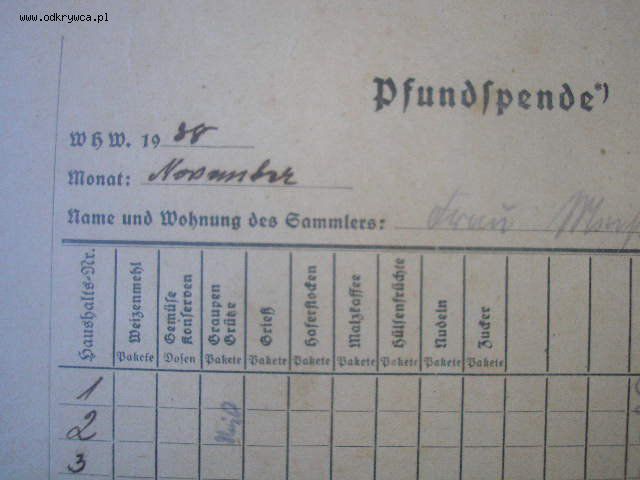 www.odkrywca.pl
Pfundspende*)
W H W. 19 38
Monat: November
Name und Wohnung des Sammlers: Frau
Haushalts-Nr.
Weizenmehl
Pakete
Gemüse
Konserven
Dosen
Graupen
Grütze
Pakete
Grieß
Pakete
Haferflocken
Pakete
Malzkaffee
Pakete
Hülsenfrüchte
Pakete
Nudeln
Pakete
Zucker
Pakete
1
2
3